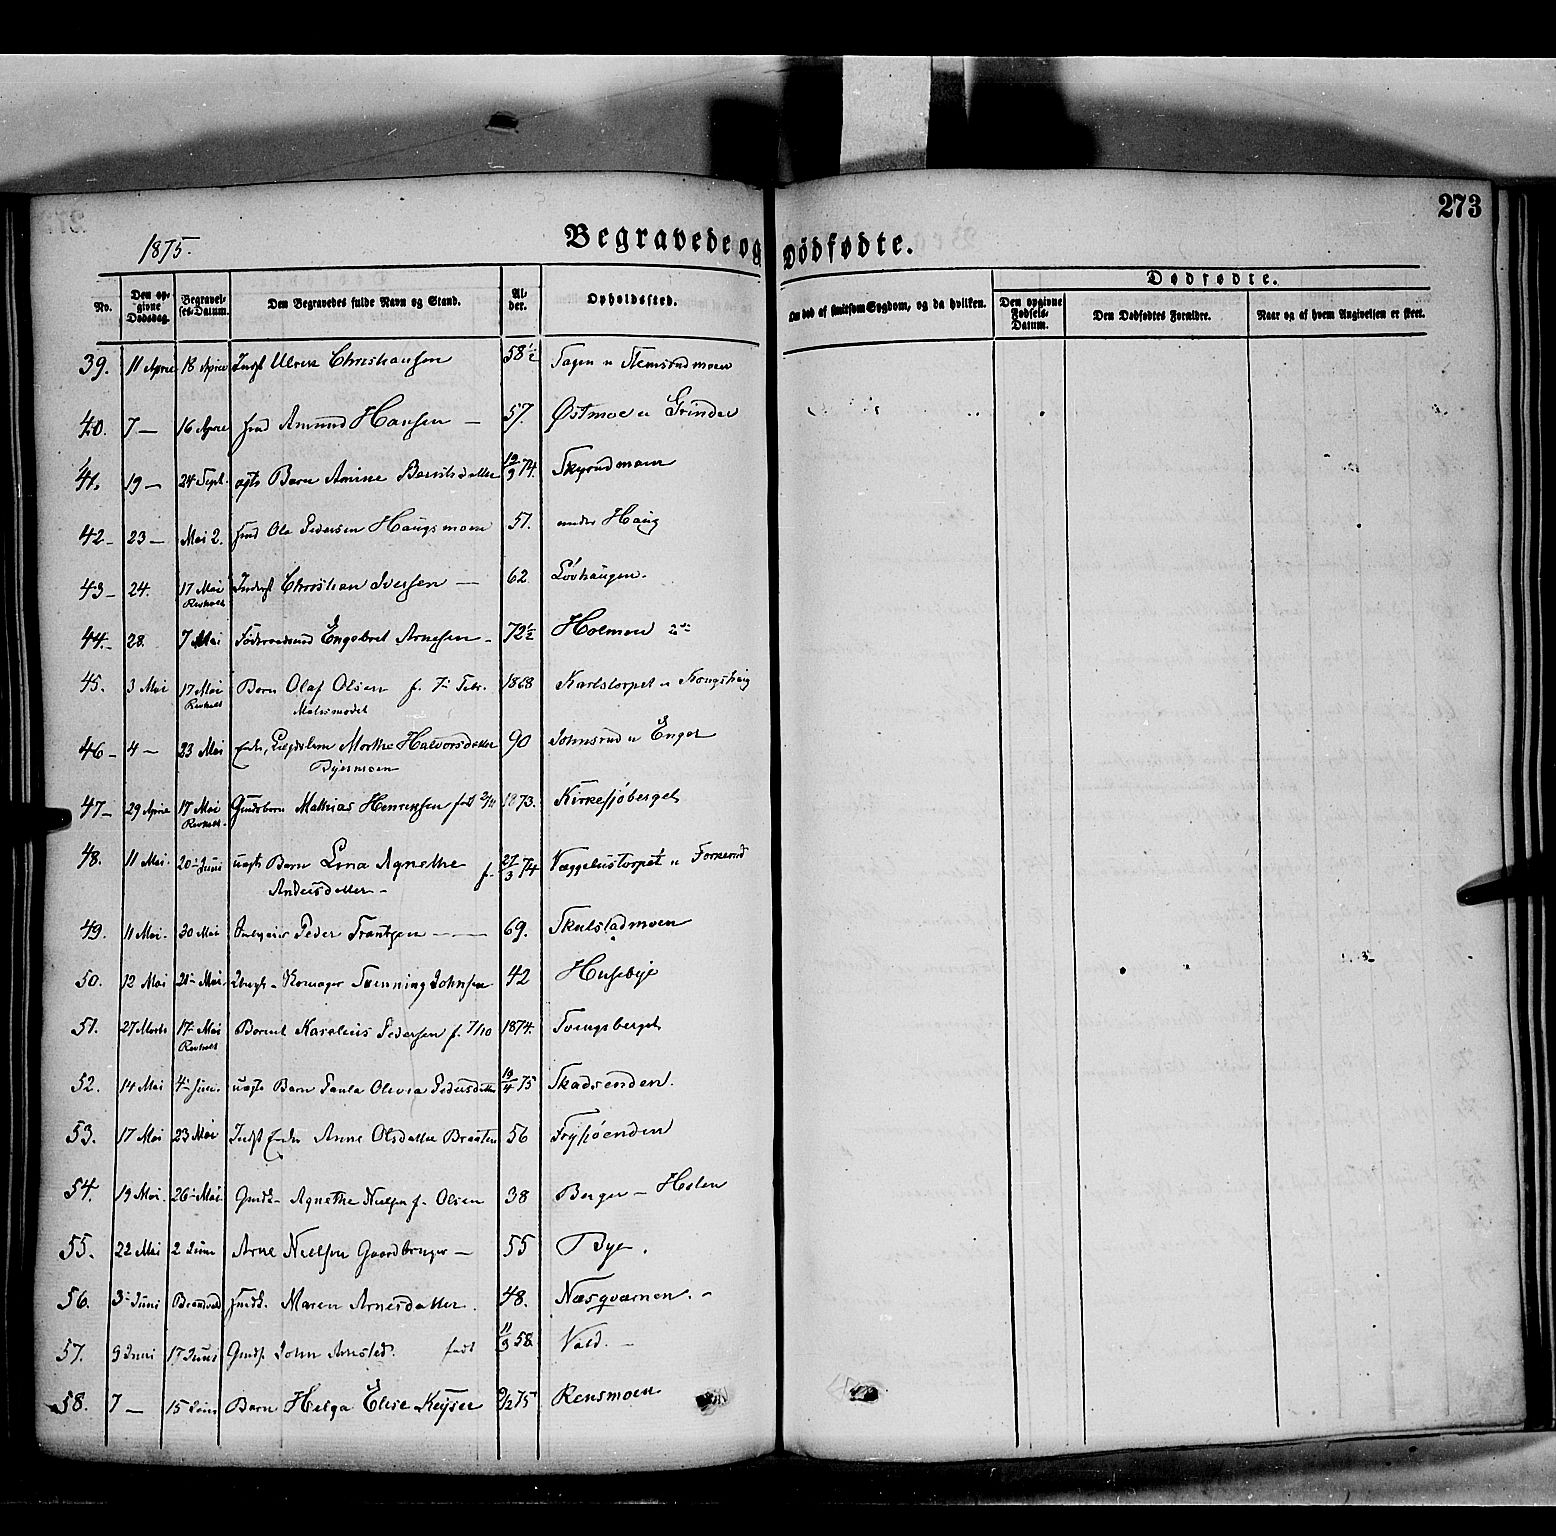 273
1875.
Begravede og Dødfødte.
No. Den opgivne Dødsdag. Begravelses-Datum. Den Begravedes fulde Navn og Stand. Alder. Opholdssted. Om død af smitsom Sygdom, og da hvilken. Dødfødte.
Den opgivne Fødsels-Datum. Den Dødfødtes Forældre. Naar og af hvem Angivelsen er skeet.
39. 11 April 18 April Indst Christiansen 58 1/2 Tagen u
40. 7 — 16 April Amund Hansen — 57. Østmoe u Grinder
41. 19 — 24 Sept. Barn Amine 19/3 74. Skyrudmoen
42 — 23 — Mai 2. Ole Pedersen Haugsmoen 51. under Haug
43 — 24. 17 Mai Christian Iversen — 62. Løvhaugen.
Revholt
44. — 28. 7 Mai Engebret Arnesen — 72 1/2 Holmen
45. 3 Mai 17 Mai Barn Olaf Olsen f. 7 Febr. 1868 Karlstorpet u Kongshaug
Revholt
46 — 4 — 23 Mai Enke, Marthe Halvorsdatter 90 Johnsrud u Enger
47 — 29 April 17 Mai Mathias Henriksen født 1873. Kirkesjøberget
Revholt
48. 11 Mai. 20 Juni uægte Barn Lina Agnethe f. 27/3 74 u
Andersdatter —
49. 11 Mai. 30 Mai Peder Frantzen — 69. Skulstadmoen
50. 12 Mai Mai. Svenning Johnsen 42 Husebye
51. 27 Marts 17 Mai Barnet Karelius Pedersen f. 7/10 1874. Tvengsberget
Revholt
52. 14 Mai 4 Juni. uægte Barn Paula Olevia Pedersdatter 19/4 75 Skadsenden.
53. 17 Mai 23 Mai Indst Enke Anne Olsdatter Braaten 56 Frysjøenden
54. 19 Mai. 26 Mai. Agnethe Nielsen f. Olsen 38 Berger —
55. 22 Mai 2 Juni Arne Nielsen Gaardbruger — 55 Bye.
56. 3 Juni Maren Arnesdatter. 48. Næsqvarnen. —
57. 9 Juni 17 Juni John Arnsted. født 11/3 58 Vold. —
58. 7 — 15 Juni Barn Helga Elise Keyser 9/2 75 Rensmoen